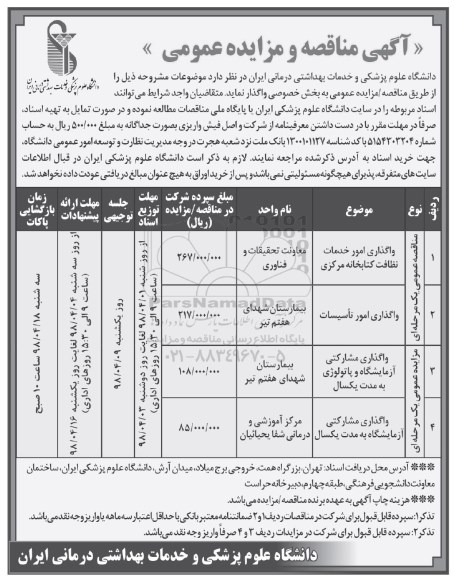 دانشگاه علوم پزشکی و خدمات بهداشتی درمانی ایران
« آگهی مناقصه و مزایده عمومی »
دانشگاه علوم پزشکی و خدمات بهداشتی درمانی ایران در نظر دارد موضوعات مشروحه ذیل را
از طریق مناقصه/مزایده عمومی به بخش خصوصی واگذار نماید. متقاضیان واجد شرایط می‌توانند
اسناد مربوطه را در سایت دانشگاه علوم پزشکی ایران یا پایگاه ملی مناقصات مطالعه نموده و در صورت تمایل به تهیه اسناد،
صرفاً در مهلت مقرر با در دست داشتن معرفینامه از شرکت و اصل فیش واریزی بصورت جداگانه به مبلغ ۵۰۰/۰۰۰ ریال به حساب
شماره ۵۱۵۴۳۰۳۲۰۴ با کد شناسه ۱۳۰۰۱۰۱۱۳۷ بانک ملت نزد شعبه هجرت در وجه مدیریت نظارت و توسعه امور عمومی دانشگاه،
جهت خرید اسناد به آدرس ذکر شده مراجعه نمایند. لازم به ذکر است دانشگاه علوم پزشکی ایران در قبال اطلاعات
سایت‌های متفرقه، پذیرای هیچگونه مسئولیتی نمی‌باشد و پس از خرید اوراق به هیچ عنوان مبالغ دریافتی عودت داده نخواهد شد.
ردیف نوع موضوع نام واحد مبلغ سپرده شرکت در مناقصه/مزایده (ریال) مهلت توزیع اسناد جلسه توجیهی مهلت ارائه پیشنهادات زمان بازگشایی پاکات
مناقصه عمومی یک مرحله‌ای
۱ واگذاری امور خدمات نظافت کتابخانه مرکزی معاونت تحقیقات و فناوری ۲۶۷/۰۰۰/۰۰۰
۲ واگذاری امور تأسیسات بیمارستان شهدای هفتم تیر ۲۱۷/۰۰۰/۰۰۰
مزایده عمومی یک مرحله‌ای
۳ واگذاری مشارکتی آزمایشگاه و پاتولوژی به مدت یکسال بیمارستان شهدای هفتم تیر ۱۰۸/۰۰۰/۰۰۰
۴ واگذاری مشارکتی آزمایشگاه به مدت یکسال مرکز آموزشی و درمانی شفا یحیائیان ۸۵/۰۰۰/۰۰۰
از روز شنبه ۹۸/۰۴/۰۱ لغایت روز دوشنبه ۹۸/۰۴/۰۳
(ساعت ۹ الی ۱۵:۳۰ روزهای اداری)
روز یکشنبه ۹۸/۰۴/۰۹
از روز سه شنبه ۹۸/۰۴/۰۴ لغایت روز یکشنبه ۹۸/۰۴/۱۶
(ساعت ۹ الی ۱۵:۳۰ روزهای اداری)
سه شنبه ۹۸/۰۴/۱۸ ساعت ۱۰ صبح
ParsNamadData
پایگاه اطلاع رسانی مناقصات و مزایدات
۰۲۱-۸۸۳۴۹۶۷۰-۵
※※※ آدرس محل دریافت اسناد: تهران، بزرگراه همت، خروجی برج میلاد، میدان آرش، دانشگاه علوم پزشکی ایران، ساختمان
معاونت دانشجویی فرهنگی، طبقه چهارم، دبیرخانه حراست
※※※ هزینه چاپ آگهی به عهده برنده مناقصه/مزایده می‌باشد.
تذکر۱: سپرده قابل قبول برای شرکت در مناقصات ردیف ۱ و ۲ ضمانتنامه معتبر بانکی با حداقل اعتبار سه ماهه یا واریز وجه نقد می‌باشد.
تذکر۲: سپرده قابل قبول برای شرکت در مزایدات ردیف ۳ و ۴ صرفاً واریز وجه نقد می‌باشد.
دانشگاه علوم پزشکی و خدمات بهداشتی درمانی ایران